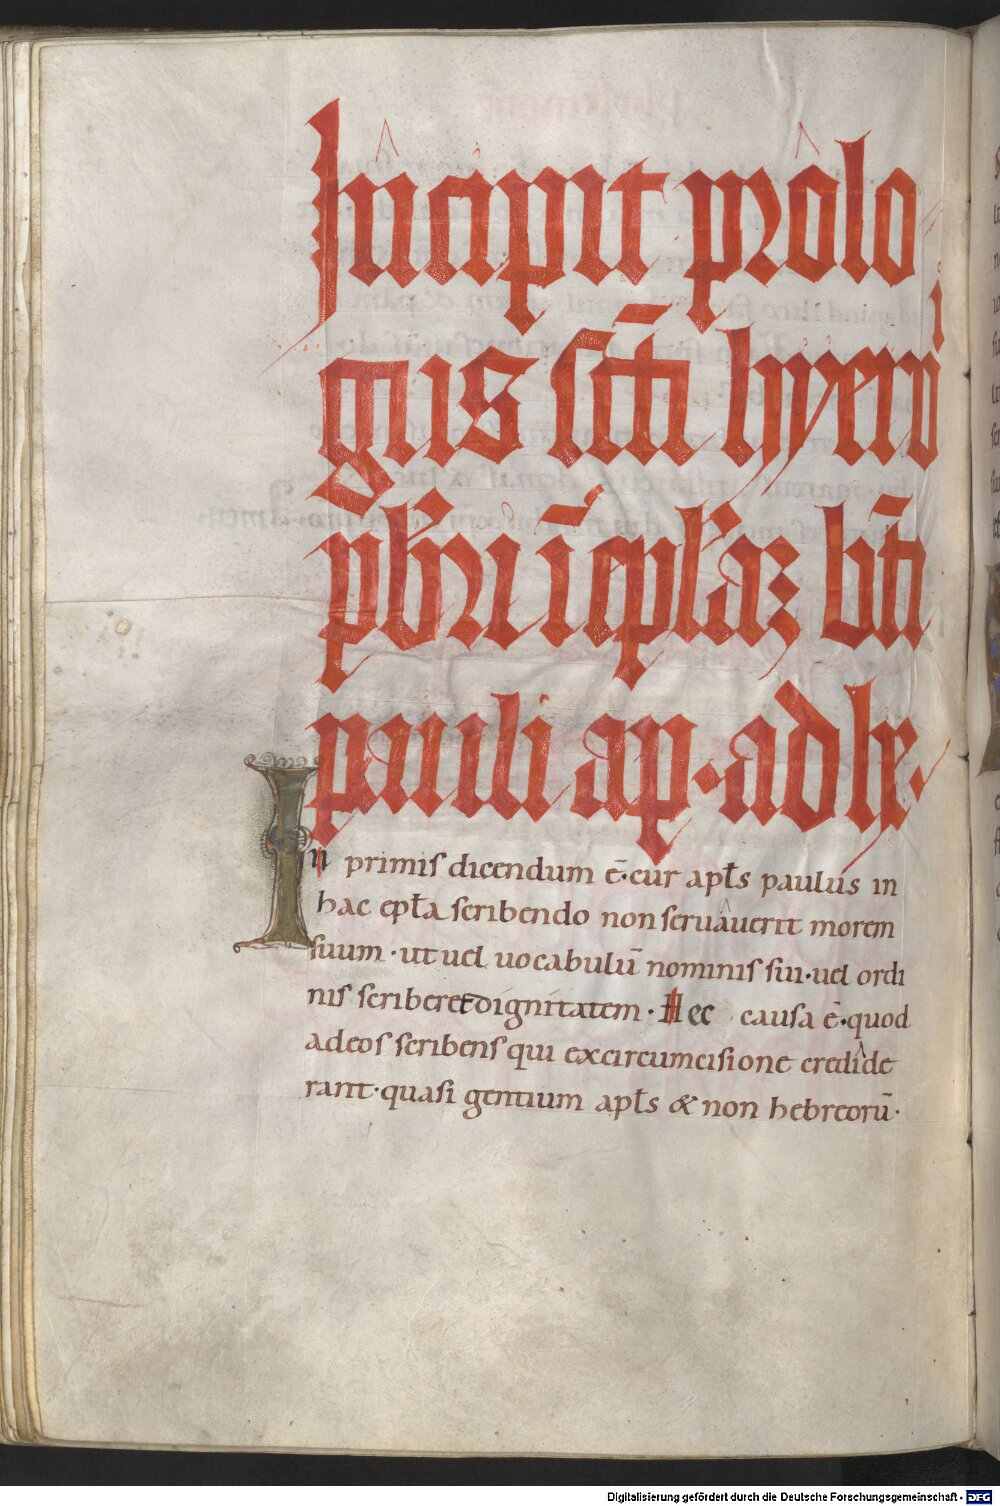 Incipit prolo
gus sc̄ti hyeroi
pb̄ri ī ep̄laꝫ b̄ti
pauli ap · ad he ·
In primis dicendum ē · cur apl̄s paulus in
hac epl̄a scribendo non seruauerit morem
suum · ut uel uocabulū nominis sui · uel ordi
nis scriberet dignitatem · Hec causa ē · quod
adeos scribens qui excircumcisione credide
rant · quasi gentium apl̄s & non hebreorū ·
Digitalisierung gefördert durch die Deutsche Forschungsgemeinschaft - DFG